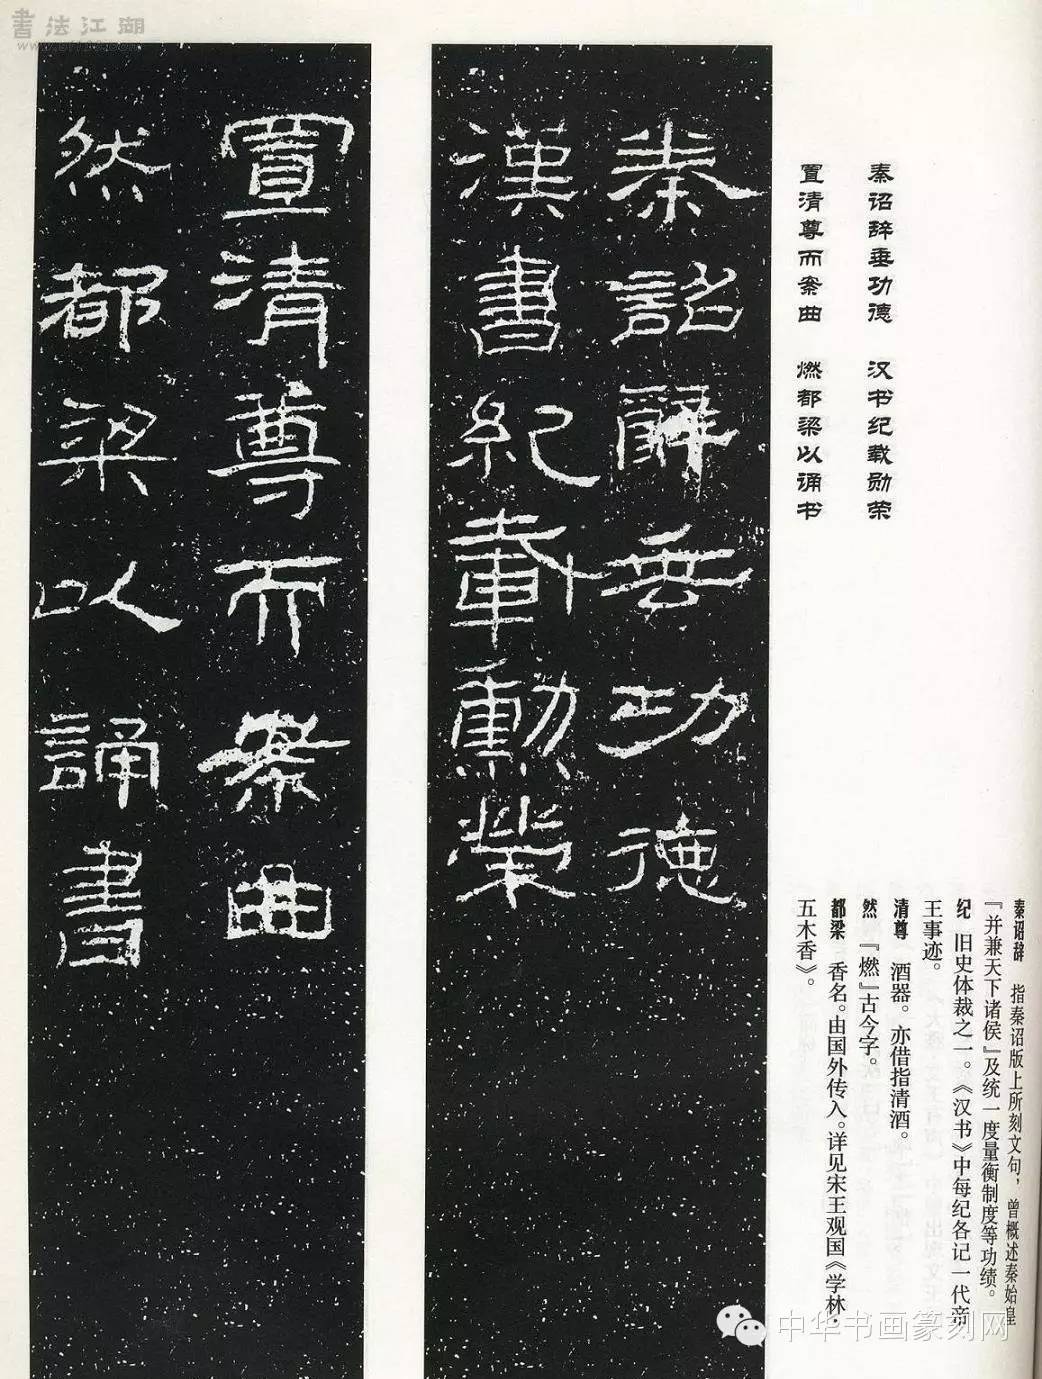 書法江湖
秦诏辞垂功德 汉书纪载勋荣
置清尊而案曲 燃都梁以诵书
秦詔辭垂功德
漢書紀載勳榮
置清尊而案曲
然都梁以誦書
秦诏辞 指秦诏版上所刻文句，曾概述秦始皇
『并兼天下诸侯』及统一度量衡制度等功绩。
纪 旧史体裁之一。《汉书》中每纪各记一代帝
王事迹。
清尊 酒器。亦借指清酒。
然 『燃』古今字。
都梁 香名。由国外传入。详见宋王观国《学林·
五木香》。
中华书画篆刻网